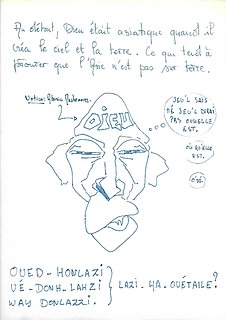 Au début, Dieu était asiatique quand il
créa le ciel et la terre. Ce qui tend à
prouver que l'Asie n'est pas sur terre.
Notice:
DIEU
JEU'L SAIS
OÙ JEU'L DIRAI
PAS OUSELLE
EST.
OÙ QU'ELLE
EST.
OUED-HONLAZI
VÉ-DONH-LAHZI
WAY DONLAZZI.
LAZI-YA-OUÉTAILE?